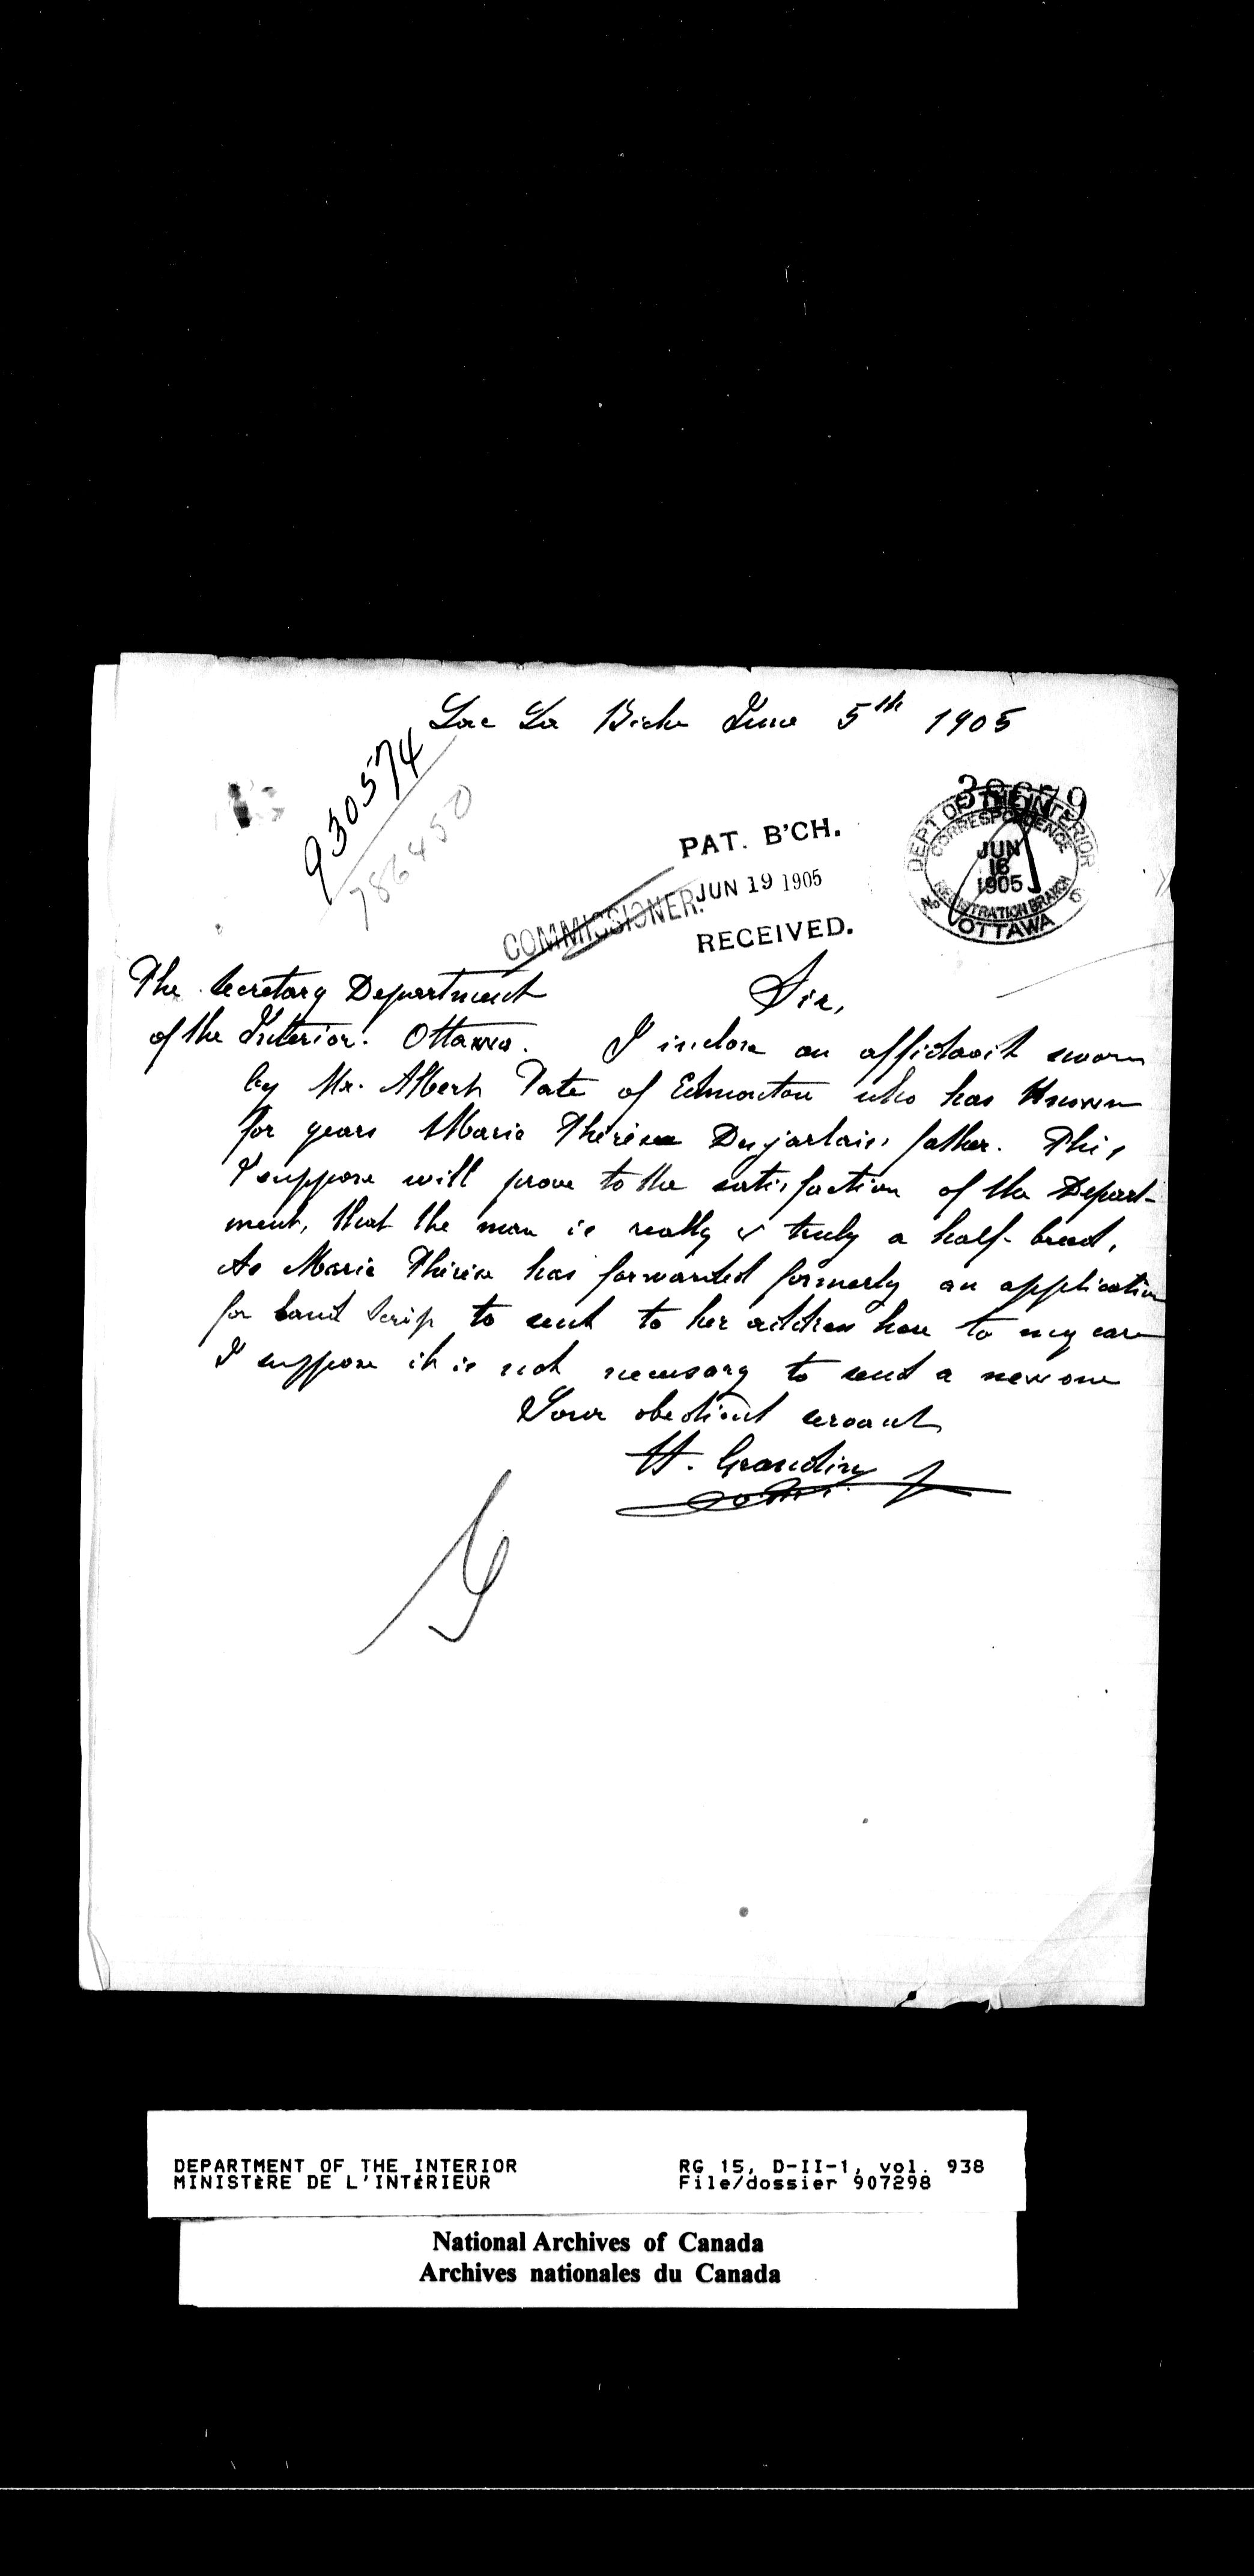 Lac La Biche June 5th 1905
930574
786450
PAT. B'CH.
JUN 19 1905
RECEIVED.
COMMISSIONER.
DEPT OF THE INTERIOR
CORRESPONDENCE
JUN
16
1905
REGISTRATION BRANCH
OTTAWA
The Secretary Department
of the Interior. Ottawa.
Sir,
I inclose an affidavit sworn
by Mr. Albert Tate of Edmonton who has known
for years Marie Thérèse Desjarlais, father. This
I suppose will prove to the satisfaction of the Depart-
ment, that the man is really & truly a half-breed.
As Marie Thérèse has forwarded formerly an application
for land scrip to sent to her address here to my care
I suppose it is not necessary to send a new one
Your obedient servant
H. Grandin
o.m.i.
DEPARTMENT OF THE INTERIOR
MINISTÈRE DE L'INTÉRIEUR
RG 15, D-II-1, vol. 938
File/dossier 907298
National Archives of Canada
Archives nationales du Canada